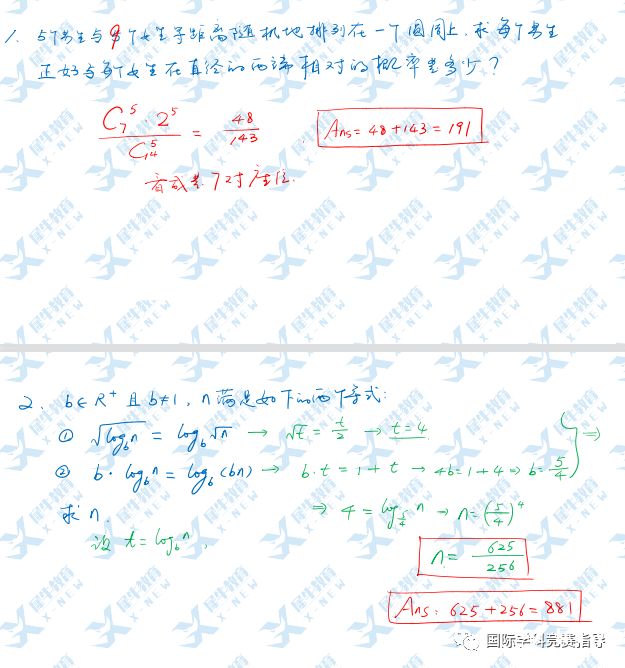 1. 5个男生与9个女生等距离随机地排列在一个圆周上, 求每个男生
正好与每个女生在直径的两端相对的概率是多少?
C₇⁵·2⁵ / C₁₄⁵ = 48/143
Ans = 48+143 = 191
看成是7对座位.
2. b∈R⁺ 且 b≠1, n满足如下的两个等式:
① √(log_b n) = log_b √n → √t = t/2 → t=4
② b·log_b n = log_b (bn) → b·t = 1+t → 4b=1+4 ⇒ b=5/4 } ⇒
求n.
⇒ 4 = log_(5/4) n → n=(5/4)⁴
设 t=log_b n,
n= 625/256
Ans: 625+256=881
国际学科竞赛指导
犀牛教育
X·NEW